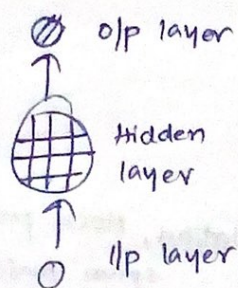 o/p layer
Hidden
layer
I/p layer